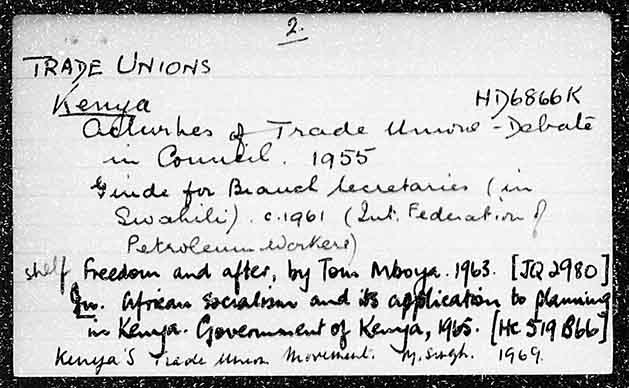 2.
TRADE UNIONS
Kenya HD6866K
Activities of Trade Unions - Debate
in Council. 1955
Guide for Branch Secretaries (in
Swahili). c.1961 (Int. Federation of
Petroleum Workers)
shelf Freedom and after, by Tom Mboya. 1963. [JQ 2980]
African socialism and its application to planning
in Kenya. Government of Kenya, 1965. [HC 519 B66]
Kenya's Trade Union Movement. M. Singh. 1969.